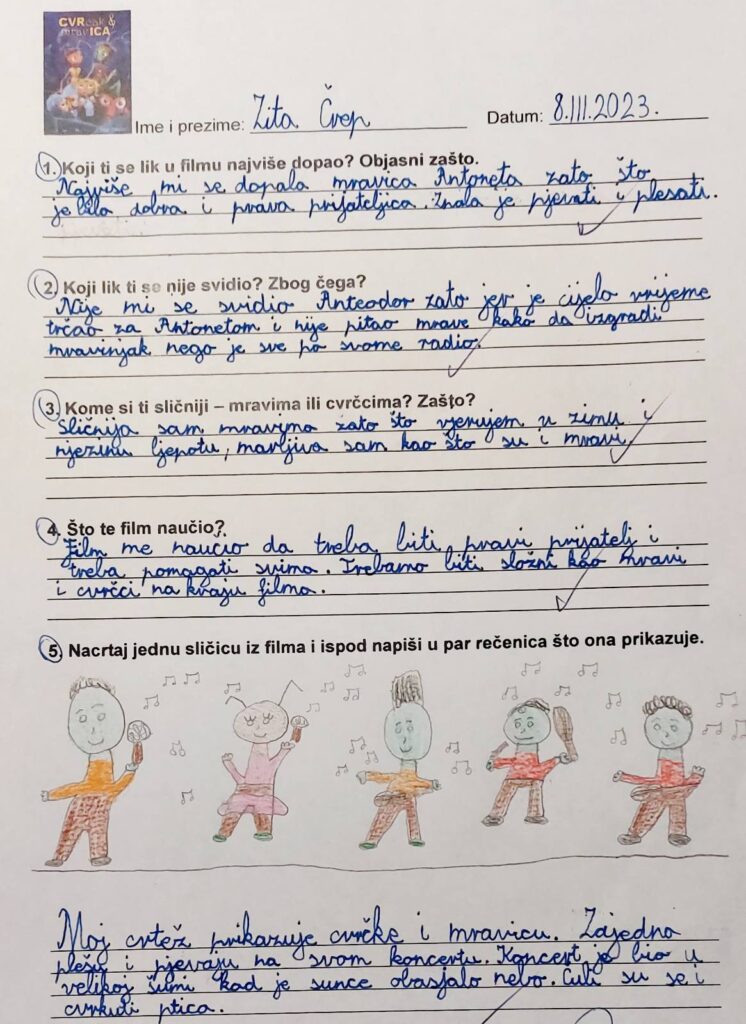 CVRčak &
mravICA
Ime i prezime: Zita Čvep
Datum: 8.III.2023.
1. Koji ti se lik u filmu najviše dopao? Objasni zašto.
Najviše mi se dopala mravica Antoneta zato što
je bila dobra i prava prijateljica. Znala je pjevati i plesati.
2. Koji lik ti se nije svidio? Zbog čega?
Nije mi se svidio Anteodor zato jer je cijelo vrijeme
trčao za Antonetom i nije pitao mrave kako da izgradi
mravinjak nego je sve po svome radio.
3. Kome si ti sličniji – mravima ili cvrčcima? Zašto?
Sličnija sam mravima zato što vjerujem u zimu i
njezinu ljepotu, marljiva sam kao što su i mravi.
4. Što te film naučio?
Film me naučio da treba biti pravi prijatelj i
treba pomagati svima. Trebamo biti složni kao mravi
i cvrčci na kraju filma.
5. Nacrtaj jednu sličicu iz filma i ispod napiši u par rečenica što ona prikazuje.
Moj crtež prikazuje cvrčke i mravicu. Zajedno
plešu i pjevaju na svom koncertu. Koncert je bio u
velikoj šumi kad je sunce obasjalo nebo. Čuli su se i
cvrkuti ptica.